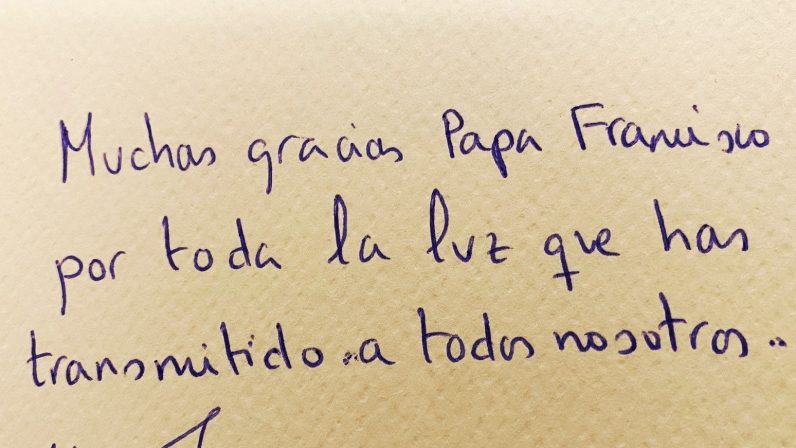 Muchas gracias Papa Francisco
por toda la luz que has
transmitido..a todos nosotros..